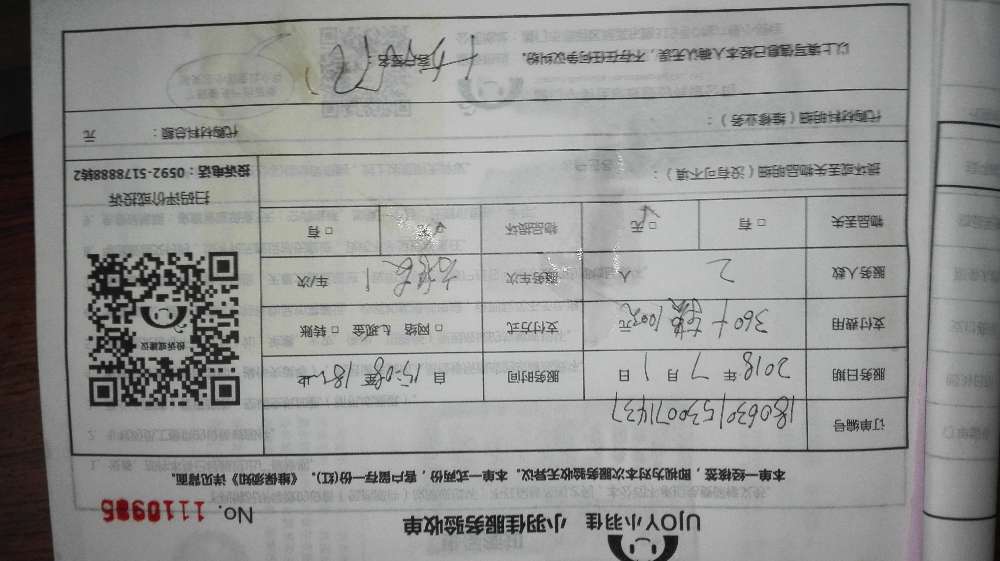 UJOY小羽佳 小羽佳服务验收单
No. 1110985
本单一经核签，即视为对本次服务验收无异议。本单一式两份，客户留存一份(红)。《维保须知》详见背面。
订单编号 180630153007143７
服务日期 2018 年 7 月 1 日 服务时间 自 15:08 至
支付费用 360+ 100元 元 支付方式 □ 网络 □ 现金 □ 转账
服务人数 2 人 服务车次 1 车/次
物品丢失 □ 有 □ 无 物品损坏 □ 无 □ 有
投诉或建议
扫码评价或投诉
投诉电话：0592-5178888转2
损坏或丢失物品明细（没有可不填）：
代购材料明细（维修业务）： 代购材料总额： 元
以上填写信息已经本人确认无误，不存在任何争议纠纷。 客户签名：